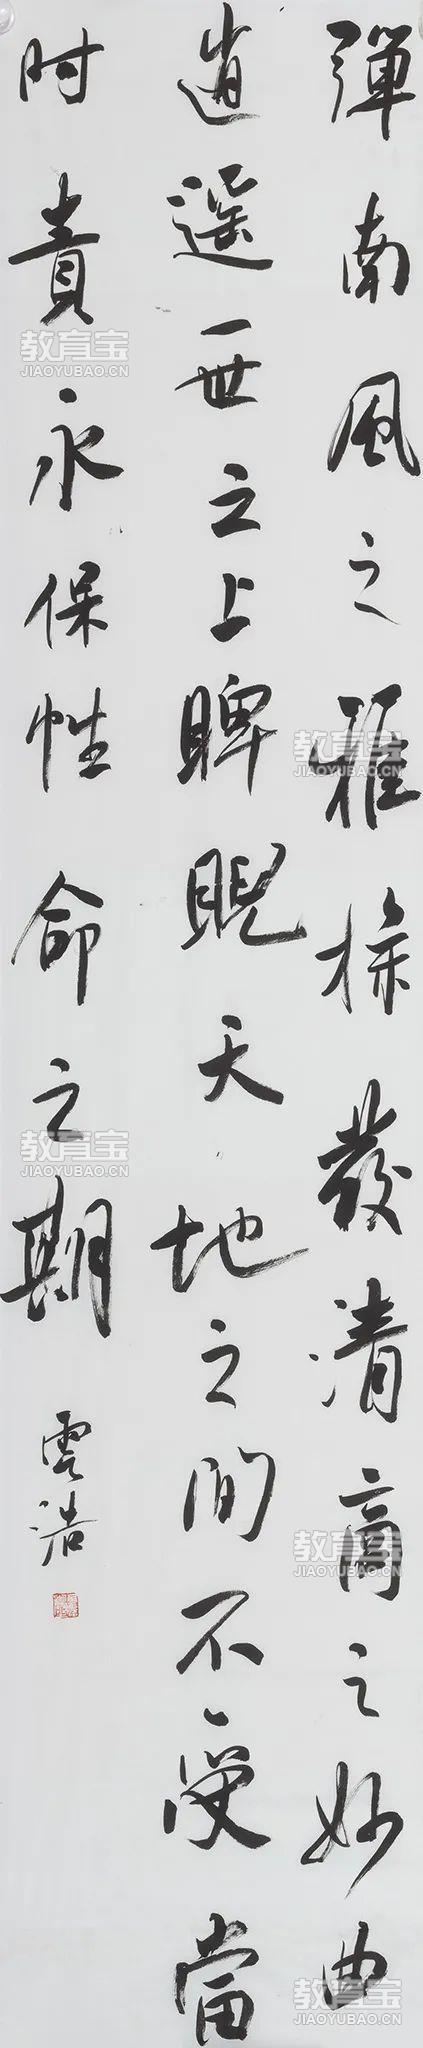 彈南風之雅操發清商之妙曲
逍遥一世之上睥睨天地之间不受當
时責永保性命之期
雲浩
教育宝
JIAOYUBAO.CN
教育宝
JIAOYUBAO.CN
教育宝
JIAOYUBAO.CN
教育宝
JIAOYUBAO.CN
教育宝
JIAOYUBAO.CN
教育宝
JIAOYUBAO.CN